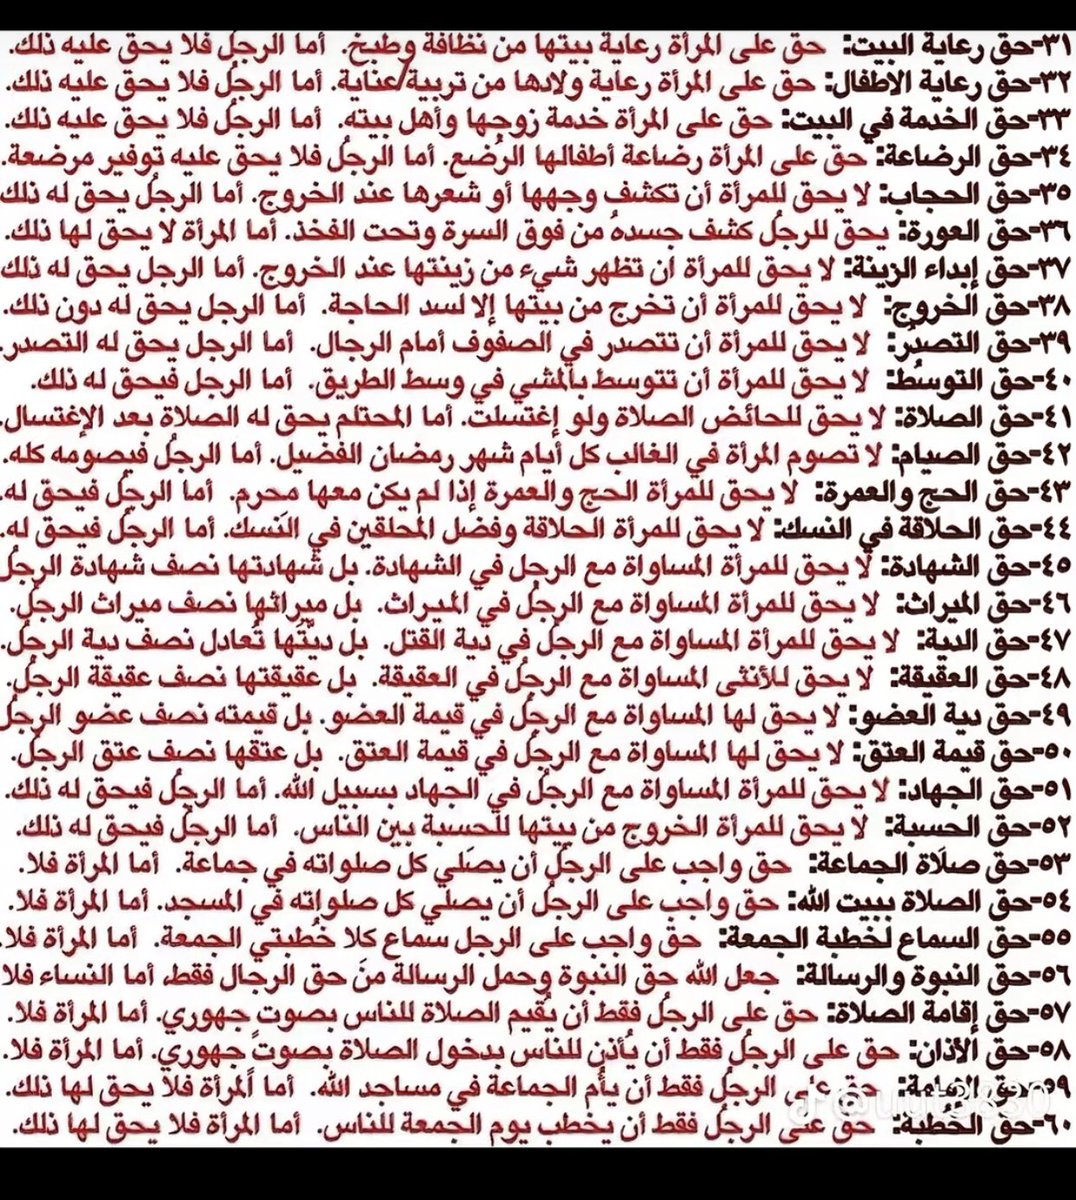 ٣١-حق رعاية البيت: حق على المرأة رعاية بيتها من نظافة وطبخ. أما الرجلُ فلا يحق عليه ذلك.
٣٢-حق رعاية الاطفال: حق على المرأة رعاية ولادها من تربية/عناية. أما الرجلُ فلا يحق عليه ذلك.
٣٣-حق الخدمة في البيت: حق على المرأة خدمة زوجها وأهل بيته. أما الرجلُ فلا يحق عليه ذلك.
٣٤-حق الرضاعة: حق على المرأة رضاعة أطفالها الرُضع. أما الرجلُ فلا يحق عليه توفير مرضعة.
٣٥-حق الحجاب: لا يحق للمرأة أن تكشف وجهها أو شعرها عند الخروج. أما الرجلُ يحق له ذلك
٣٦-حق العورة: يحق للرجلُ كشف جسدهُ من فوق السرة وتحت الفخذ. أما المرأة لا يحق لها ذلك.
٣٧-حق إبداء الزينة: لا يحق للمرأة أن تظهر شيء من زينتها عند الخروج. أما الرجل يحق له ذلك
٣٨-حق الخروج: لا يحق للمرأة أن تخرج من بيتها إلا لسد الحاجة. أما الرجل يحق له دون ذلك.
٣٩-حق التصدُر: لا يحق للمرأة أن تتصدر في الصفوف أمام الرجال. أما الرجل يحق له التصدر.
٤٠-حق التوسُط: لا يحق للمرأة أن تتوسط بالمشي في وسط الطريق. أما الرجل فيحق له ذلك.
٤١-حق الصلاة: لا يحق للحائض الصلاة ولو إغتسلت. أما المحتلم يحق له الصلاة بعد الإغتسال.
٤٢-حق الصيام: لا تصوم المرأة في الغالب كل أيام شهر رمضان الفضيل. أما الرجلُ فيصومه كله.
٤٣-حق الحج والعمرة: لا يحق للمرأة الحج والعمرة إذا لم يكن معها محرم. أما الرجلُ فيحق له.
٤٤-حق الحلاقة في النسك: لا يحق للمرأة الحلاقة وفضل المحلقين في النَسك. أما الرجلُ فيحق له.
٤٥-حق الشهادة: لا يحق للمرأة المساواة مع الرجل في الشهادة. بل شهادتها نصف شهادة الرجلُ
٤٦-حق الميراث: لا يحق للمرأة المساواة مع الرجلُ في الميراث. بل ميراثها نصف ميراث الرجلُ.
٤٧-حق الدية: لا يحق للمرأة المساواة مع الرجلُ في دية القتل. بل ديتُها تُعادل نصف دية الرجلُ.
٤٨-حق العقيقة: لا يحق للأنثى المساواة مع الرجُل في العقيقة. بل عقيقتها نصف عقيقة الرجلُ.
٤٩-حق دية العضو: لا يحق لها المساواة مع الرجلُ في قيمة العضو. بل قيمته نصف عضو الرجلُ
٥٠-حق قيمة العتق: لا يحق لها المساواة مع الرجلُ في قيمة العتق. بل عتقها نصف عتق الرجلُ.
٥١-حق الجهاد: لا يحق للمرأة المساواة مع الرجلُ في الجهاد بسبيل الله. أما الرجلُ فيحق له ذلك.
٥٢-حق الحسبة: لا يحق للمرأة الخروج من بيتها للحسبة بين الناس. أما الرجلُ فيحق له ذلك.
٥٣-حق صلاة الجماعة: حق واجب على الرجلِ أن يصلي كل صلواته في جماعة. أما المرأة فلا.
٥٤-حق الصلاة ببيت الله: حق واجب على الرجلُ أن يصلي كل صلواته في المسجد. أما المرأة فلا.
٥٥-حق السماع لخطبة الجمعة: حق واجب على الرجل سماع كلا خُطبتي الجمعة. أما المرأة فلا.
٥٦-حق النبوة والرسالة: جعل الله حق النبوة وحمل الرسالة من حق الرجال فقط، أما النساء فلا
٥٧-حق إقامة الصلاة: حق على الرجلُ فقط أن يُقيم الصلاة للناس بصوت جهوري. أما المرأة فلا.
٥٨-حق الأذان: حق على الرجلُ فقط أن يُأذن للناس بدخول الصلاة بصوت جهوري. أما المرأة فلا.
٥٩-حق الإمامة: حق على الرجلُ فقط أن يأُم الجماعة في مساجد الله. أما المرأة فلا يحق لها ذلك.
٦٠-حق الخُطبة: حق على الرجلُ فقط أن يخطب يوم الجمعة للناس. أما المرأة فلا يحق لها ذلك.